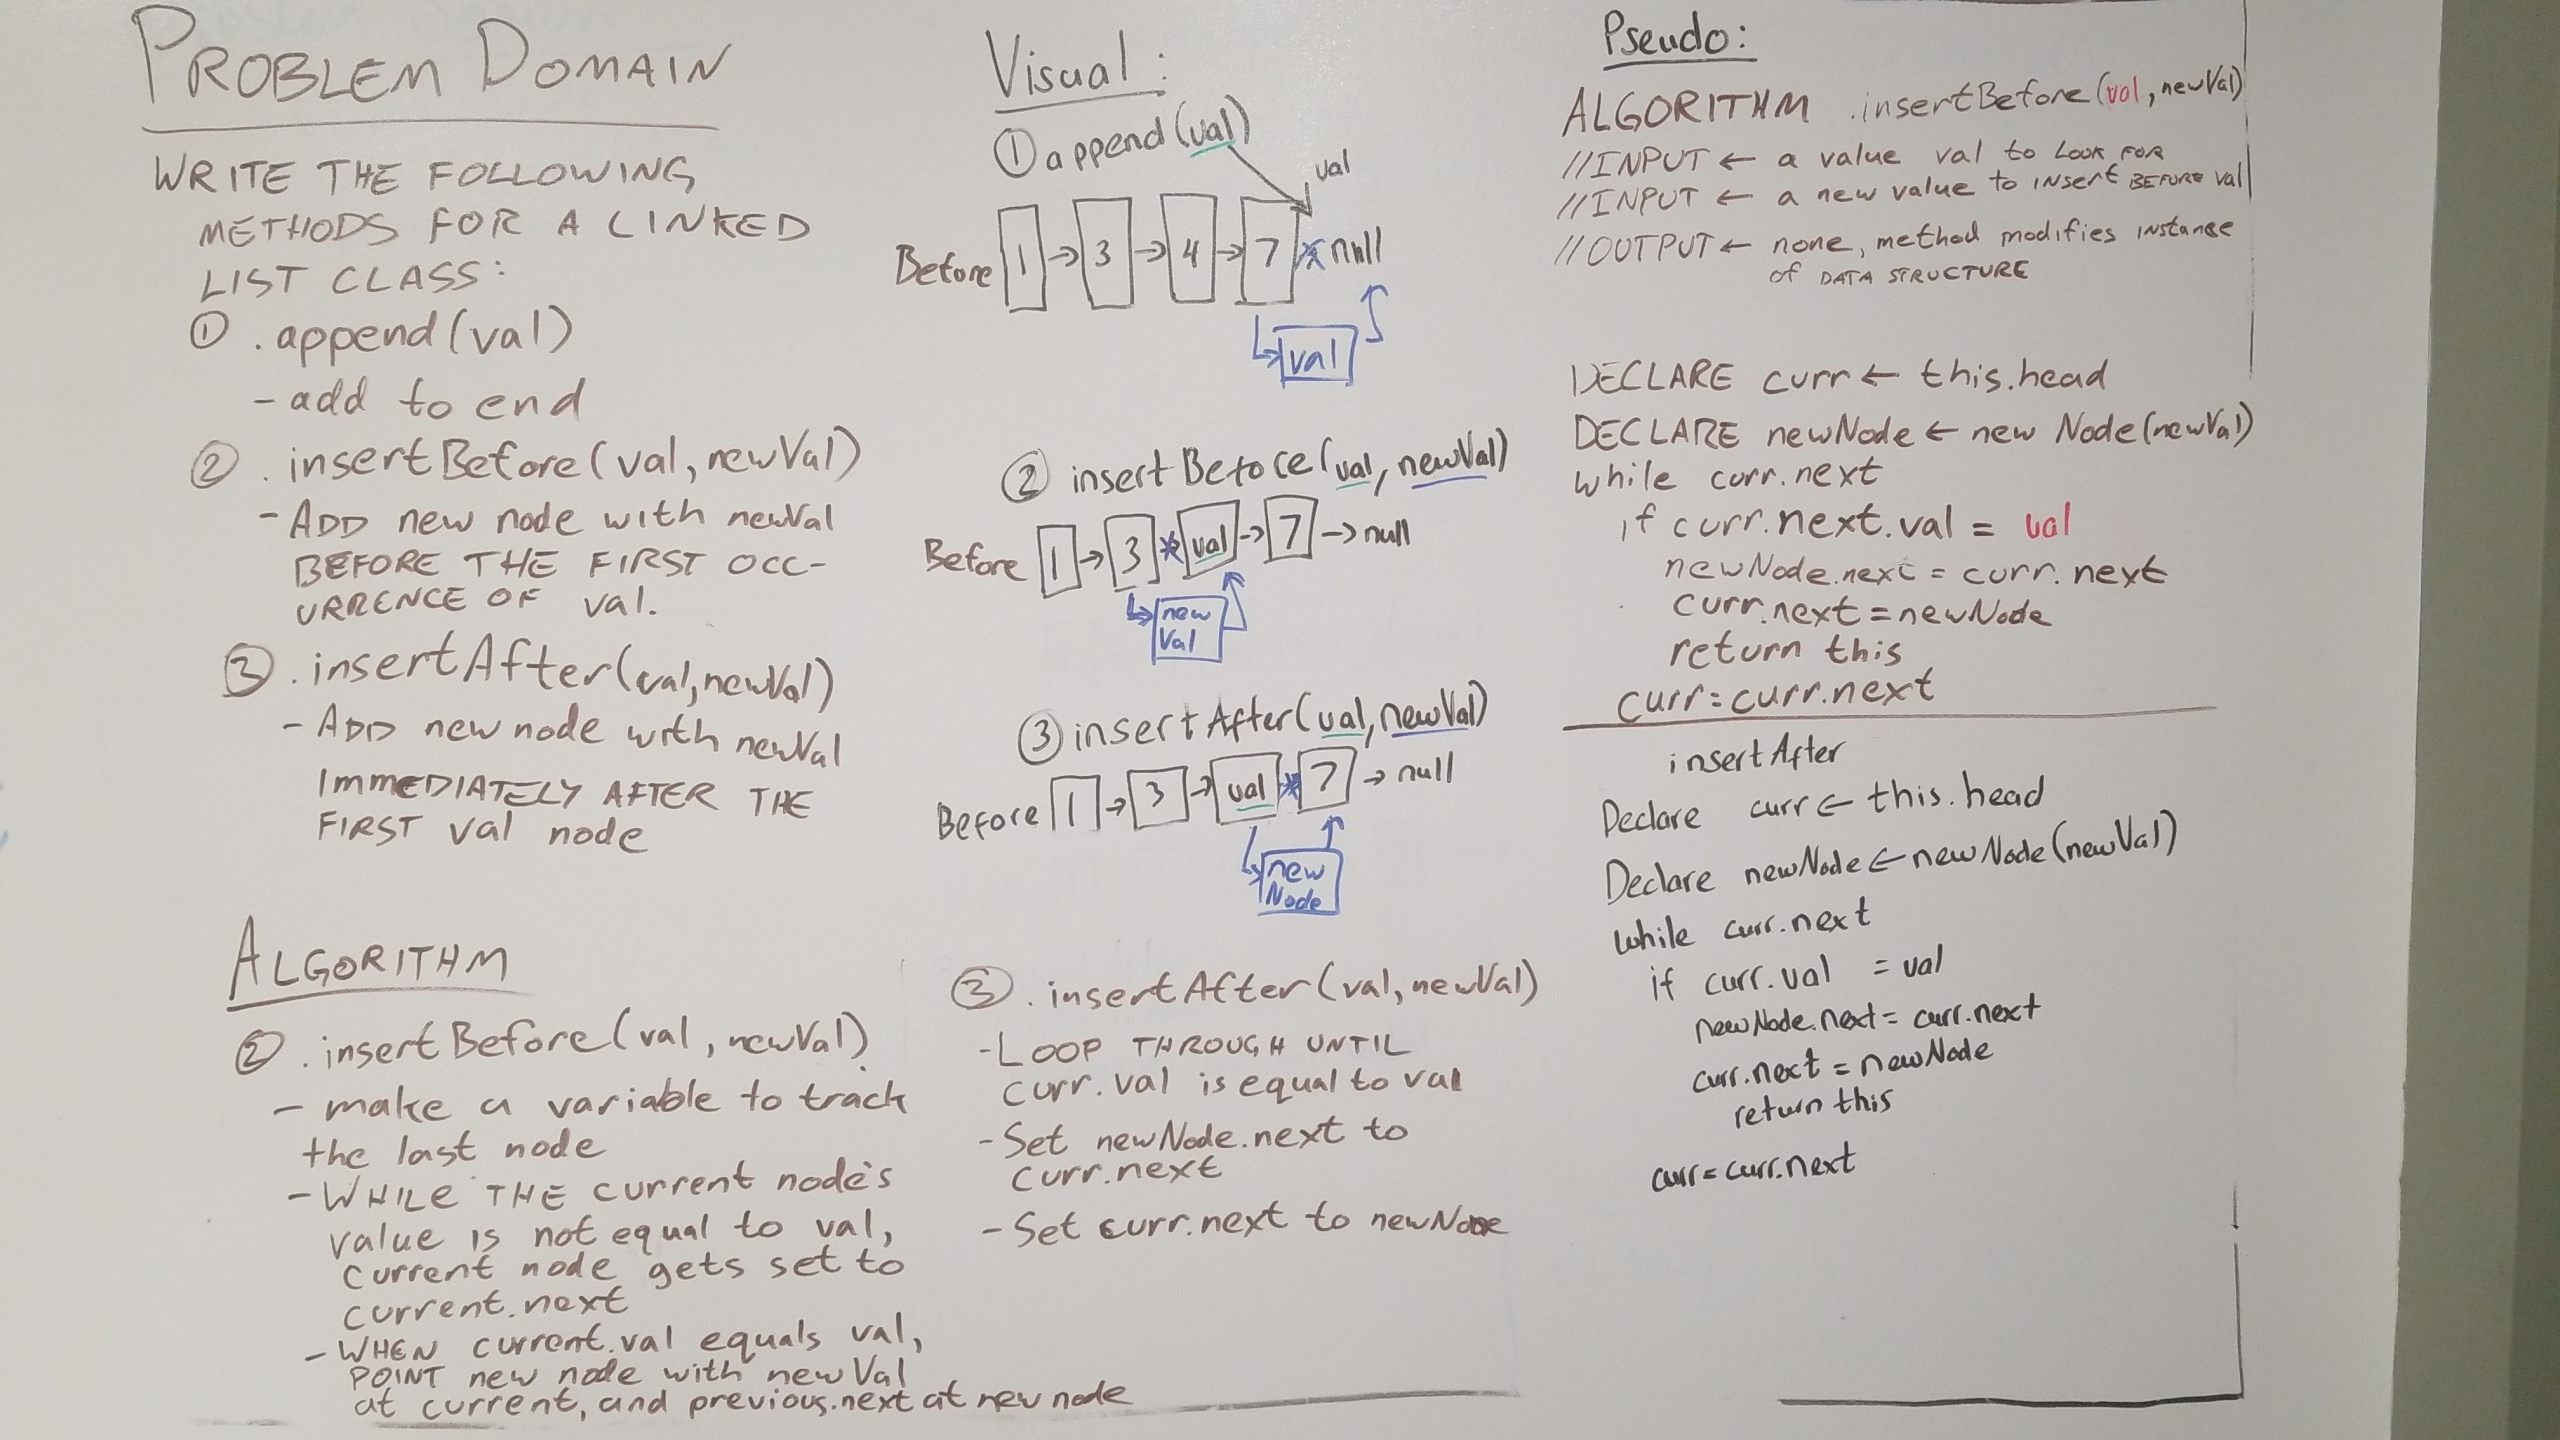 PROBLEM DOMAIN
WRITE THE FOLLOWING
METHODS FOR A LINKED
LIST CLASS:
① .append(val)
- add to end
② .insertBefore(val, newVal)
- ADD new node with newVal
BEFORE THE FIRST OCC-
URRENCE OF val.
③ .insertAfter(val, newVal)
- ADD new node with newVal
IMMEDIATELY AFTER THE
FIRST val node
ALGORITHM
② .insertBefore(val, newVal)
- make a variable to track
the last node
- WHILE THE current node's
value is not equal to val,
current node gets set to
current.next
- WHEN current.val equals val,
POINT new node with newVal
at current, and previous.next at new node
Visual:
① append(val)
val
Before 1 → 3 → 4 → 7 null
val
② insertBefore(val, newVal)
Before 1 → 3 val → 7 → null
new
Val
③ insertAfter(val, newVal)
Before 1 → 3 → val 7 → null
new
Node
③ .insertAfter(val, newVal)
- LOOP THROUGH UNTIL
curr.val is equal to val
- Set newNode.next to
curr.next
- Set curr.next to newNode
Pseudo:
ALGORITHM .insertBefore(val, newVal)
//INPUT ← a value val to LOOK FOR
//INPUT ← a new value to insert BEFORE val
//OUTPUT ← none, method modifies instance
of DATA STRUCTURE
DECLARE curr ← this.head
DECLARE newNode ← new Node(newVal)
while curr.next
if curr.next.val = val
newNode.next = curr.next
curr.next = newNode
return this
curr = curr.next
insertAfter
Declare curr ← this.head
Declare newNode ← new Node(newVal)
while curr.next
if curr.val = val
newNode.next = curr.next
curr.next = newNode
return this
curr = curr.next